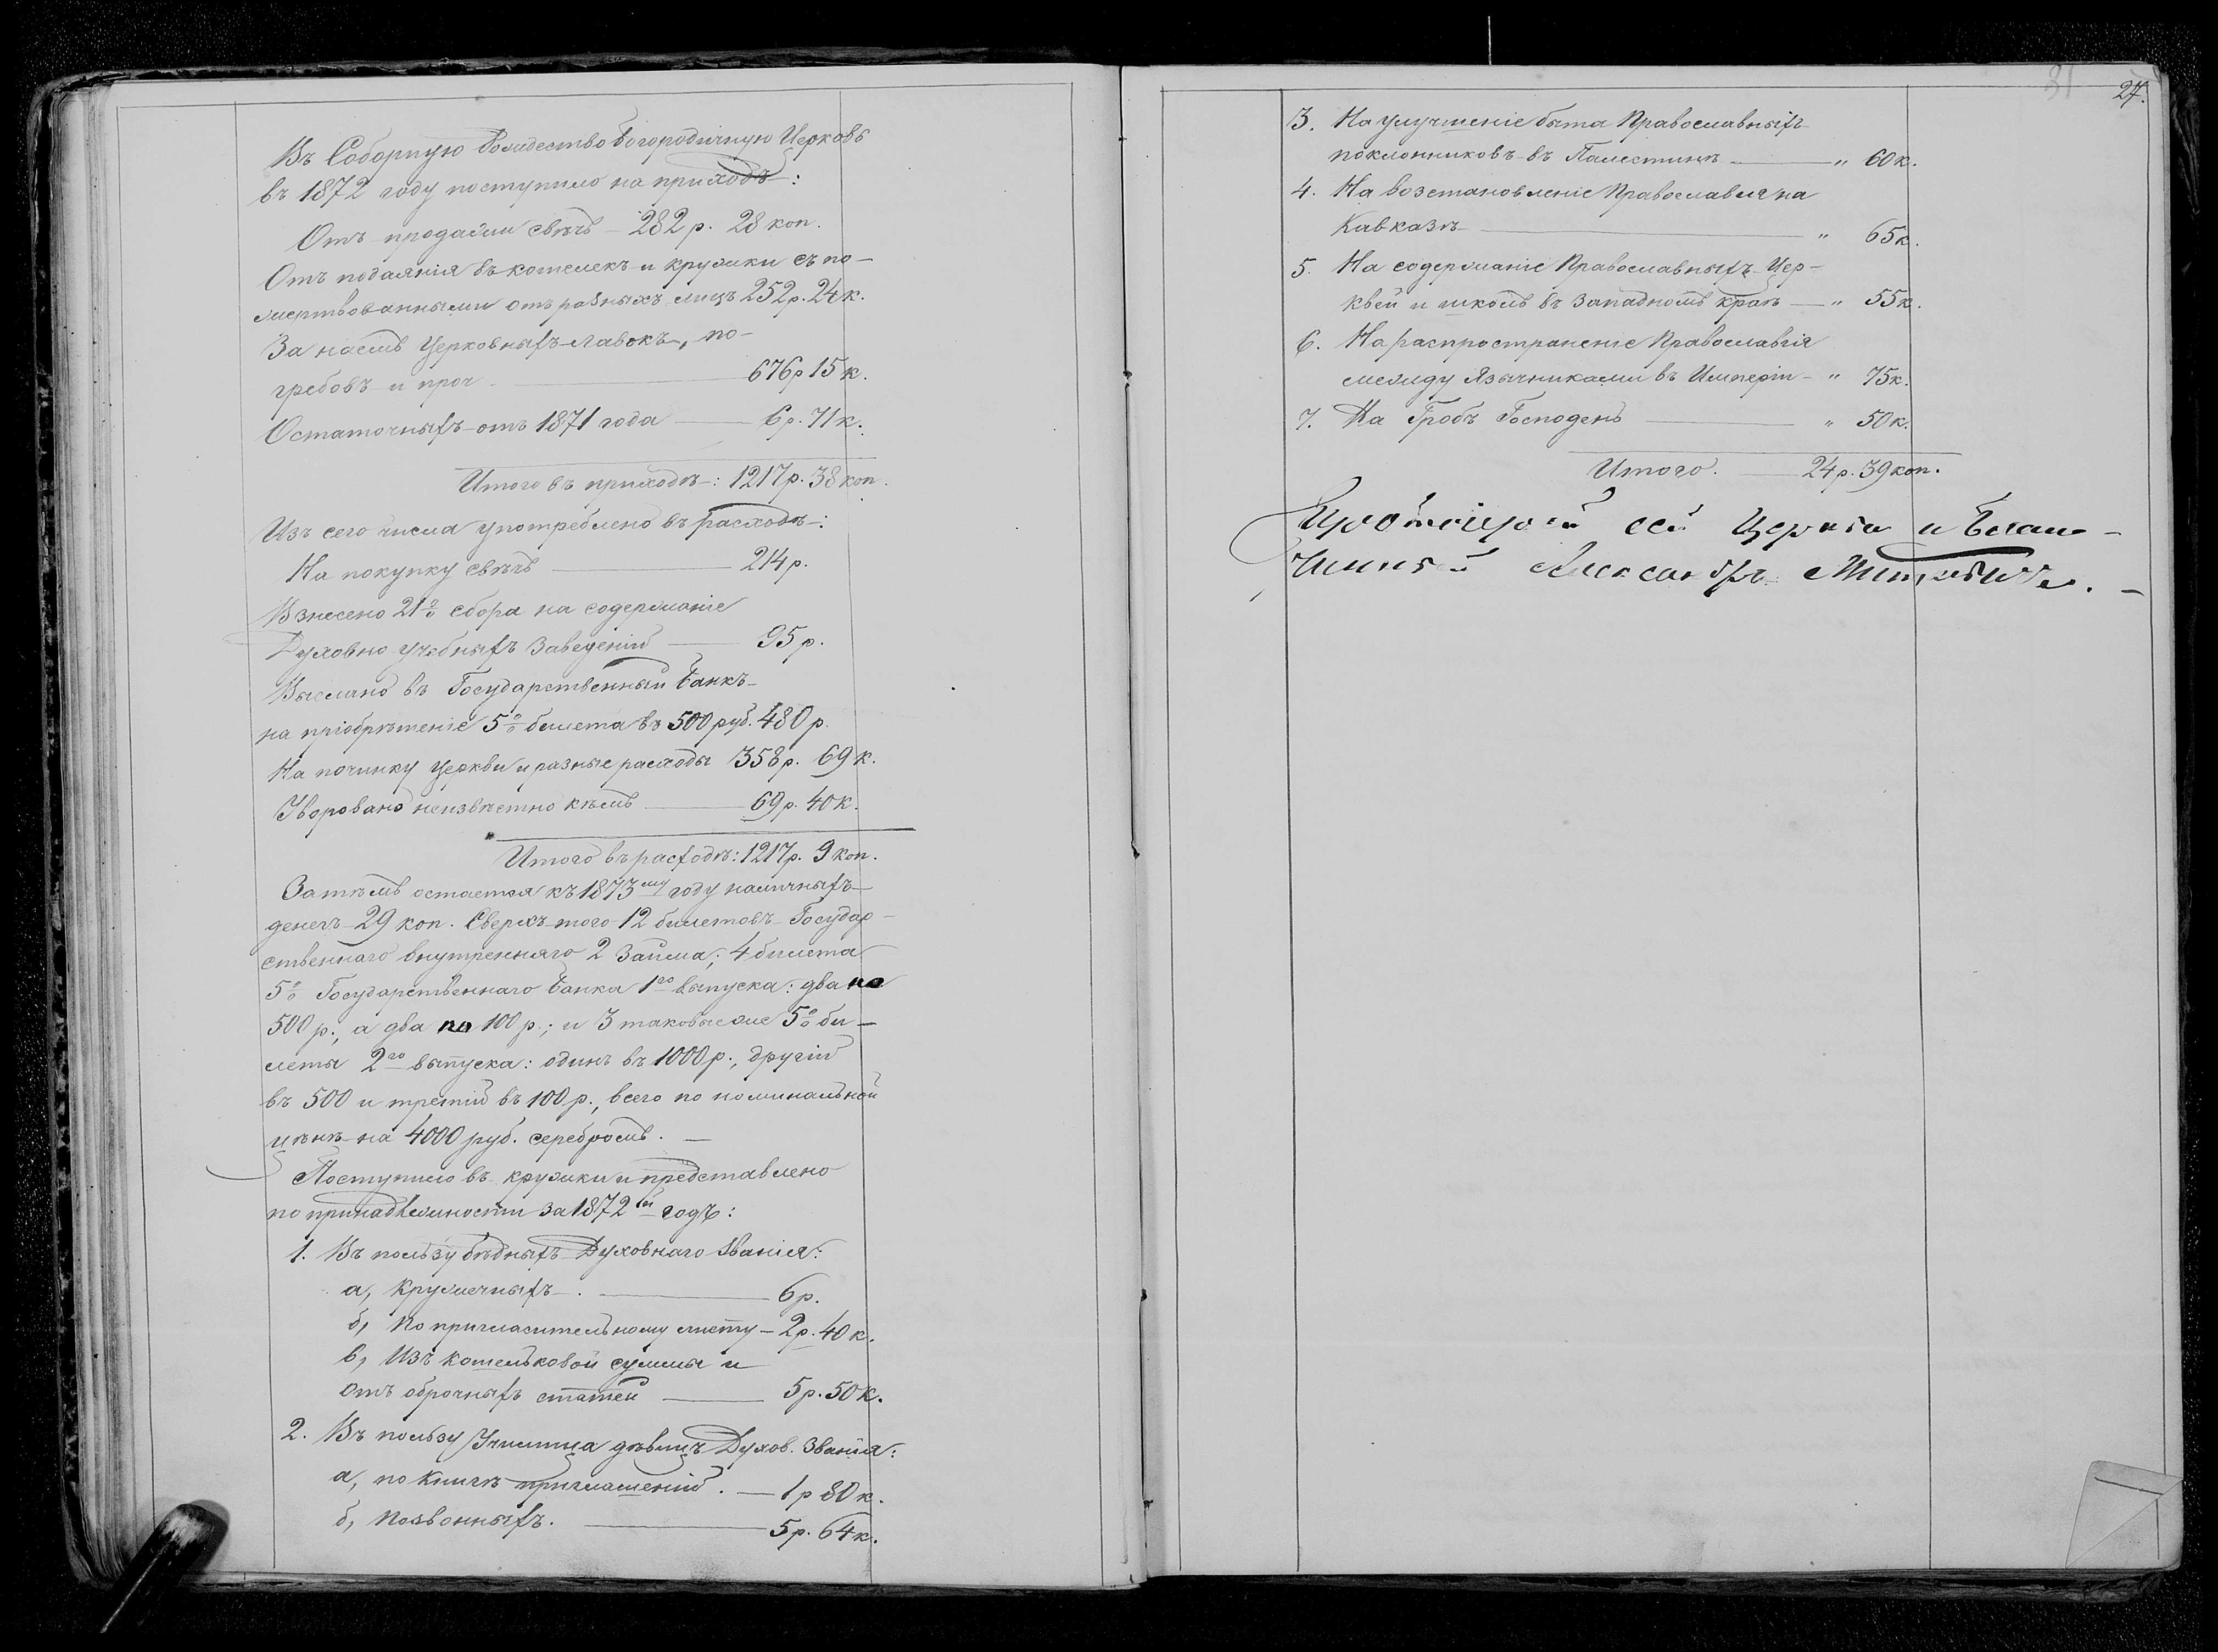 Въ Соборную Рождество Богородичную Церковь
въ 1872 году поступило на приходъ:
Отъ продажи свѣчъ – 282 р. 28 коп.
Отъ подаянія въ кошелекъ и кружки съ по-
жертвованными отъ разныхъ лицъ 252 р. 24 к.
За наемъ Церковныхъ лавокъ, по-
гребовъ и проч. — 676 р 15 к.
Остаточныхъ отъ 1871 года — 6 р. 71 к.
Итого въ приходѣ: 1217 р. 38 коп.
Изъ сего числа употреблено въ расходъ:
На покупку свѣчъ — 214 р.
Взнесено 21% сбора на содержаніе
Духовно учебныхъ Заведеній — 95 р.
Выслано въ Государственный Банкъ
на пріобрѣтеніе 5% билета въ 500 руб. 480 р.
На починку Церкви и разные расходы 358 р. 69 к.
Уворовано неизвѣстно кѣмъ — 69 р. 40 к.
Итого въ расходѣ: 1217 р. 9 коп.
Затѣмъ остается къ 1873му году наличныхъ
денегъ 29 коп. Сверхъ того 12 билетовъ Государ-
ственнаго внутренняго 2 Займа; 4 билета
5% Государственнаго Банка 1го выпуска: два по
500 р., а два по 100 р.; и 3 таковыеже 5% би-
леты 2го выпуска: одинъ въ 1000 р., другій
въ 500 и третій въ 100 р., всего по номинальной
цѣнѣ на 4000 руб. серебромъ. —
Поступило въ кружки и представлено
по принадлежности за 1872й годъ:
1. Въ пользу бѣдныхъ Духовнаго Званія:
а, Кружечныхъ. — 6 р.
б, По пригласительному листу – 2 р. 40 к.
в, Изъ кошельковой суммы и
отъ оброчныхъ статей — 5 р. 50 к.
2. Въ пользу Училища дѣвицъ Духов. Званія:
а, по книгѣ приглашеній. — 1 р 80 к.
б, Позвонныхъ. — 5 р. 64 к.
31 27.
3. На улучшеніе быта Православныхъ
поклонниковъ въ Палестинѣ — " 60 к.
4. На возстановленіе Православія на
Кавказѣ — " 65 к.
5. На содержаніе Православныхъ Цер-
квей и школъ въ Западномъ краѣ — " 55 к.
6. На распространеніе Православія
между Язычниками въ Имперіи – " 75 к.
7. На Гробъ Господень — " 50 к.
Итого. — 24 р. 39 коп.
Протоіерей сей Церкви и Благо-
чинный Александръ Миткевичъ. –